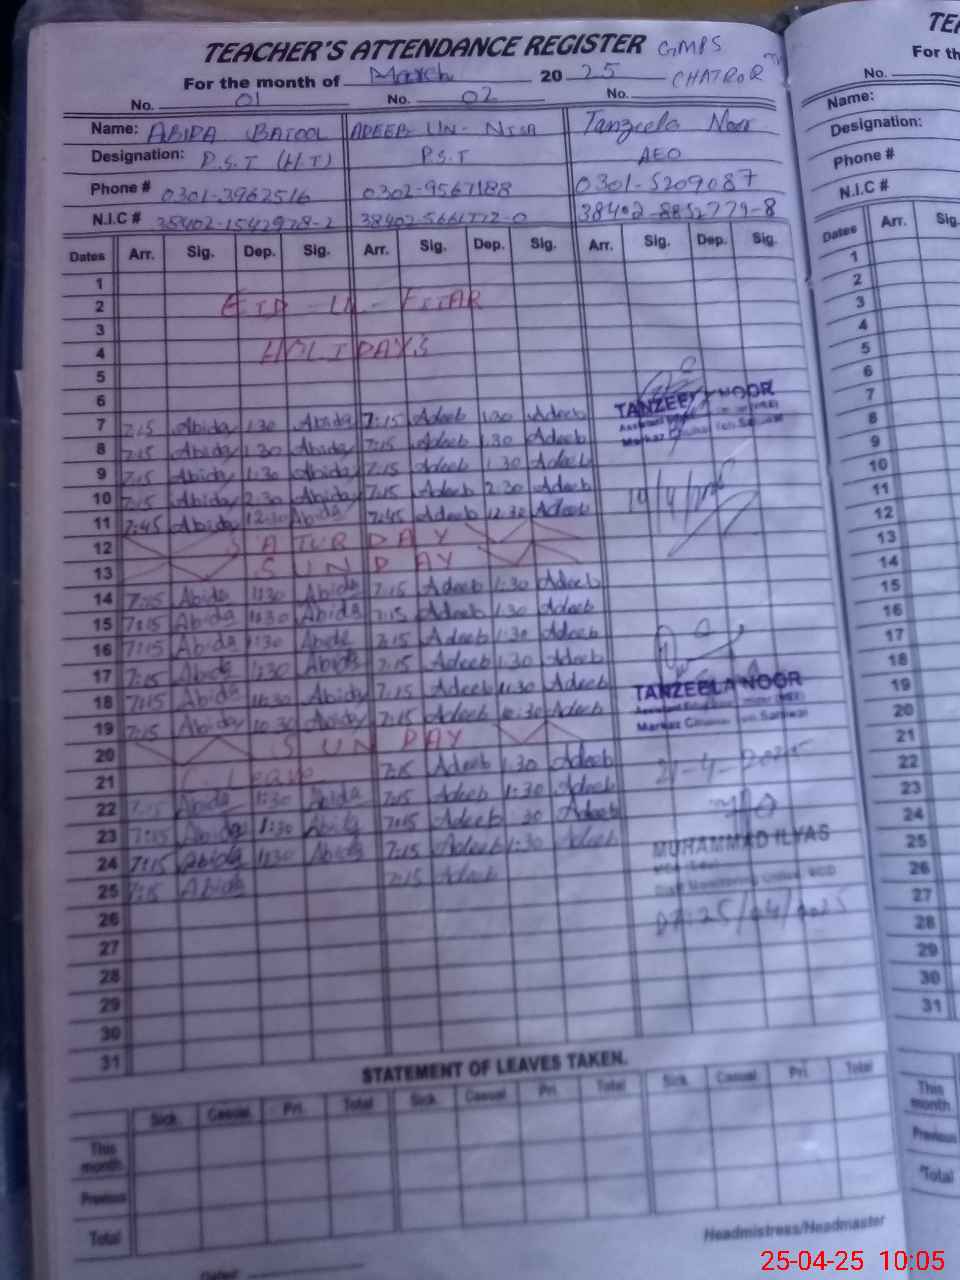 TEACHER'S ATTENDANCE REGISTER GMPS
For the month of March 20 25 CHATROR
No. 01 No. 02 No.
Name: ABIDA BATOOL ADEEB UN-NISA Tanzeela Noor
Designation: P.S.T (H.T) P.S.T AEO
Phone # 0301-3962516 0302-9567188 0301-5209087
N.I.C # 38402-1542978-2 38402-5661772-0 38402-8852779-8
Dates Arr. Sig. Dep. Sig. Arr. Sig. Dep. Sig. Arr. Sig. Dep. Sig.
1
2 EID-UL-FITAR
3
4 HOLIDAYS
5
6
7 7:15 Abida 1:30 Abida 7:15 Adeeb 1:30 Adeeb TANZEELA NOOR
8 7:15 Abida 1:30 Abida 7:15 Adeeb 1:30 Adeeb
9 7:15 Abida 1:30 Abida 7:15 Adeeb 1:30 Adeeb
10 7:15 Abida 2:30 Abida 7:15 Adeeb 2:30 Adeeb
11 7:45 Abida 12:30 Abida 7:45 Adeeb 12:30 Adeeb
12 SATURDAY
13 SUNDAY
14 7:15 Abida 1:30 Abida 7:15 Adeeb 1:30 Adeeb
15 7:15 Abida 1:30 Abida 7:15 Adeeb 1:30 Adeeb
16 7:15 Abida 1:30 Abida 7:15 Adeeb 1:30 Adeeb
17 7:15 Abida 1:30 Abida 7:15 Adeeb 1:30 Adeeb
18 7:15 Abida 11:30 Abida 7:15 Adeeb 11:30 Adeeb TANZEELA NOOR
19 7:15 Abida 10:30 Abida 7:15 Adeeb 10:30 Adeeb
20 SUNDAY
21 C-Leave 7:15 Adeeb 1:30 Adeeb 21-4-2025
22 7:15 Abida 1:30 Abida 7:15 Adeeb 1:30 Adeeb
23 7:15 Abida 1:30 Abida 7:15 Adeeb 30 Adeeb
24 7:15 Abida 1:30 Abida 7:15 Adeeb 1:30 Adeeb MUHAMMAD ILYAS
25 7:15 Abida 7:15 Adeeb
26 25/04/2025
27
28
29
30
31
STATEMENT OF LEAVES TAKEN.
Sick Casual Pri. Total Sick Casual Pri. Total Sick Casual Pri. Total
This month
Previous
Total
Headmistress/Headmaster
Dated
For th
No.
Name:
Designation:
Phone #
N.I.C #
Dates Arr. Sig.
1
2
3
4
5
6
7
8
9
10
11
12
13
14
15
16
17
18
19
20
21
22
23
24
25
26
27
28
29
30
31
This month
Previous
Total
25-04-25 10:05